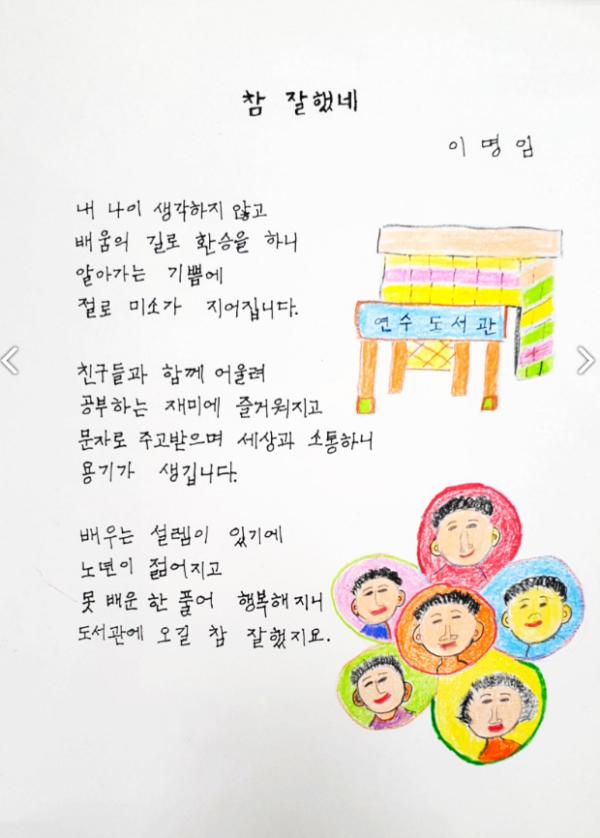 참 잘했네
이명임
내 나이 생각하지 않고
배움의 길로 환승을 하니
알아가는 기쁨에
절로 미소가 지어집니다.
연수도서관
친구들과 함께 어울려
공부하는 재미에 즐거워지고
문자로 주고받으며 세상과 소통하니
용기가 생깁니다.
배우는 설렘이 있기에
노년이 젊어지고
못 배운 한 풀어 행복해지니
도서관에 오길 참 잘했지요.